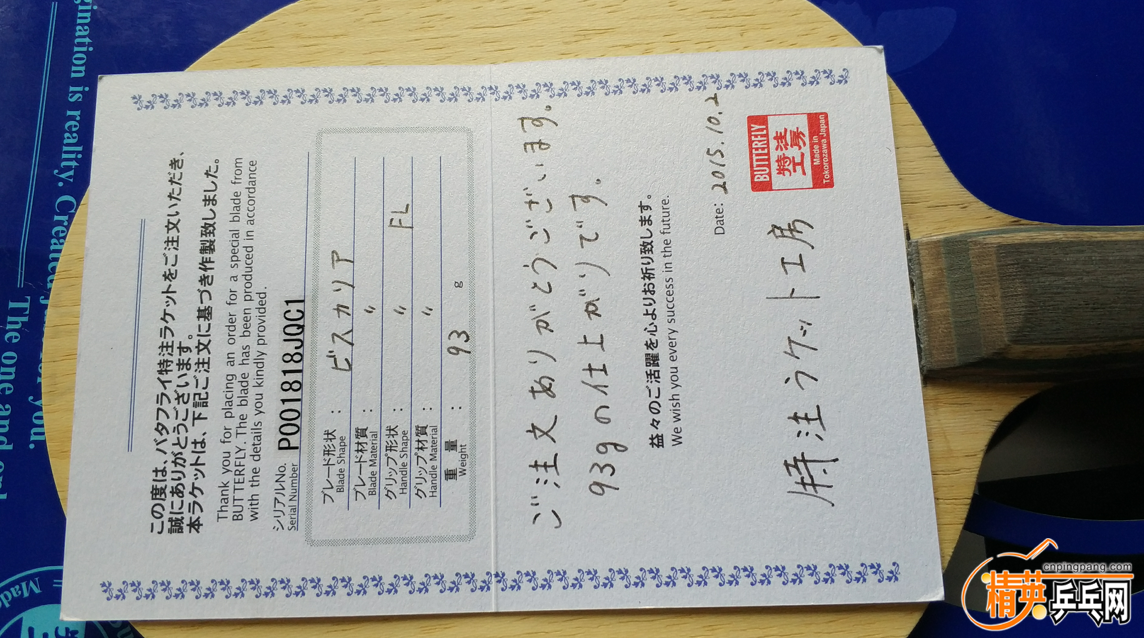 この度は、バタフライ特注ラケットをご注文いただき、
誠にありがとうございます。
本ラケットは、下記ご注文に基づき作製致しました。
Thank you for placing an order for a special blade from
BUTTERFLY. The blade has been produced in accordance
with the details you kindly provided.
シリアルNo.
Serial Number
P001818JQC1
ブレード形状 : ビスカリア
Blade Shape
ブレード材質 : 〃
Blade Material
グリップ形状 : 〃 FL
Handle Shape
グリップ材質 : 〃
Handle Material
重量 : 93 g
Weight
ご注文ありがとうございます。
93gの仕上がりです。
益々のご活躍を心よりお祈り致します。
We wish you every success in the future.
Date: 2015.10.2
BUTTERFLY
特装
工房
Made in
Tokorozawa Japan
特注ラケット工房
gination is reality. Create
you.
The one and onl
Made
cnpingpang.com
精英乒乓网